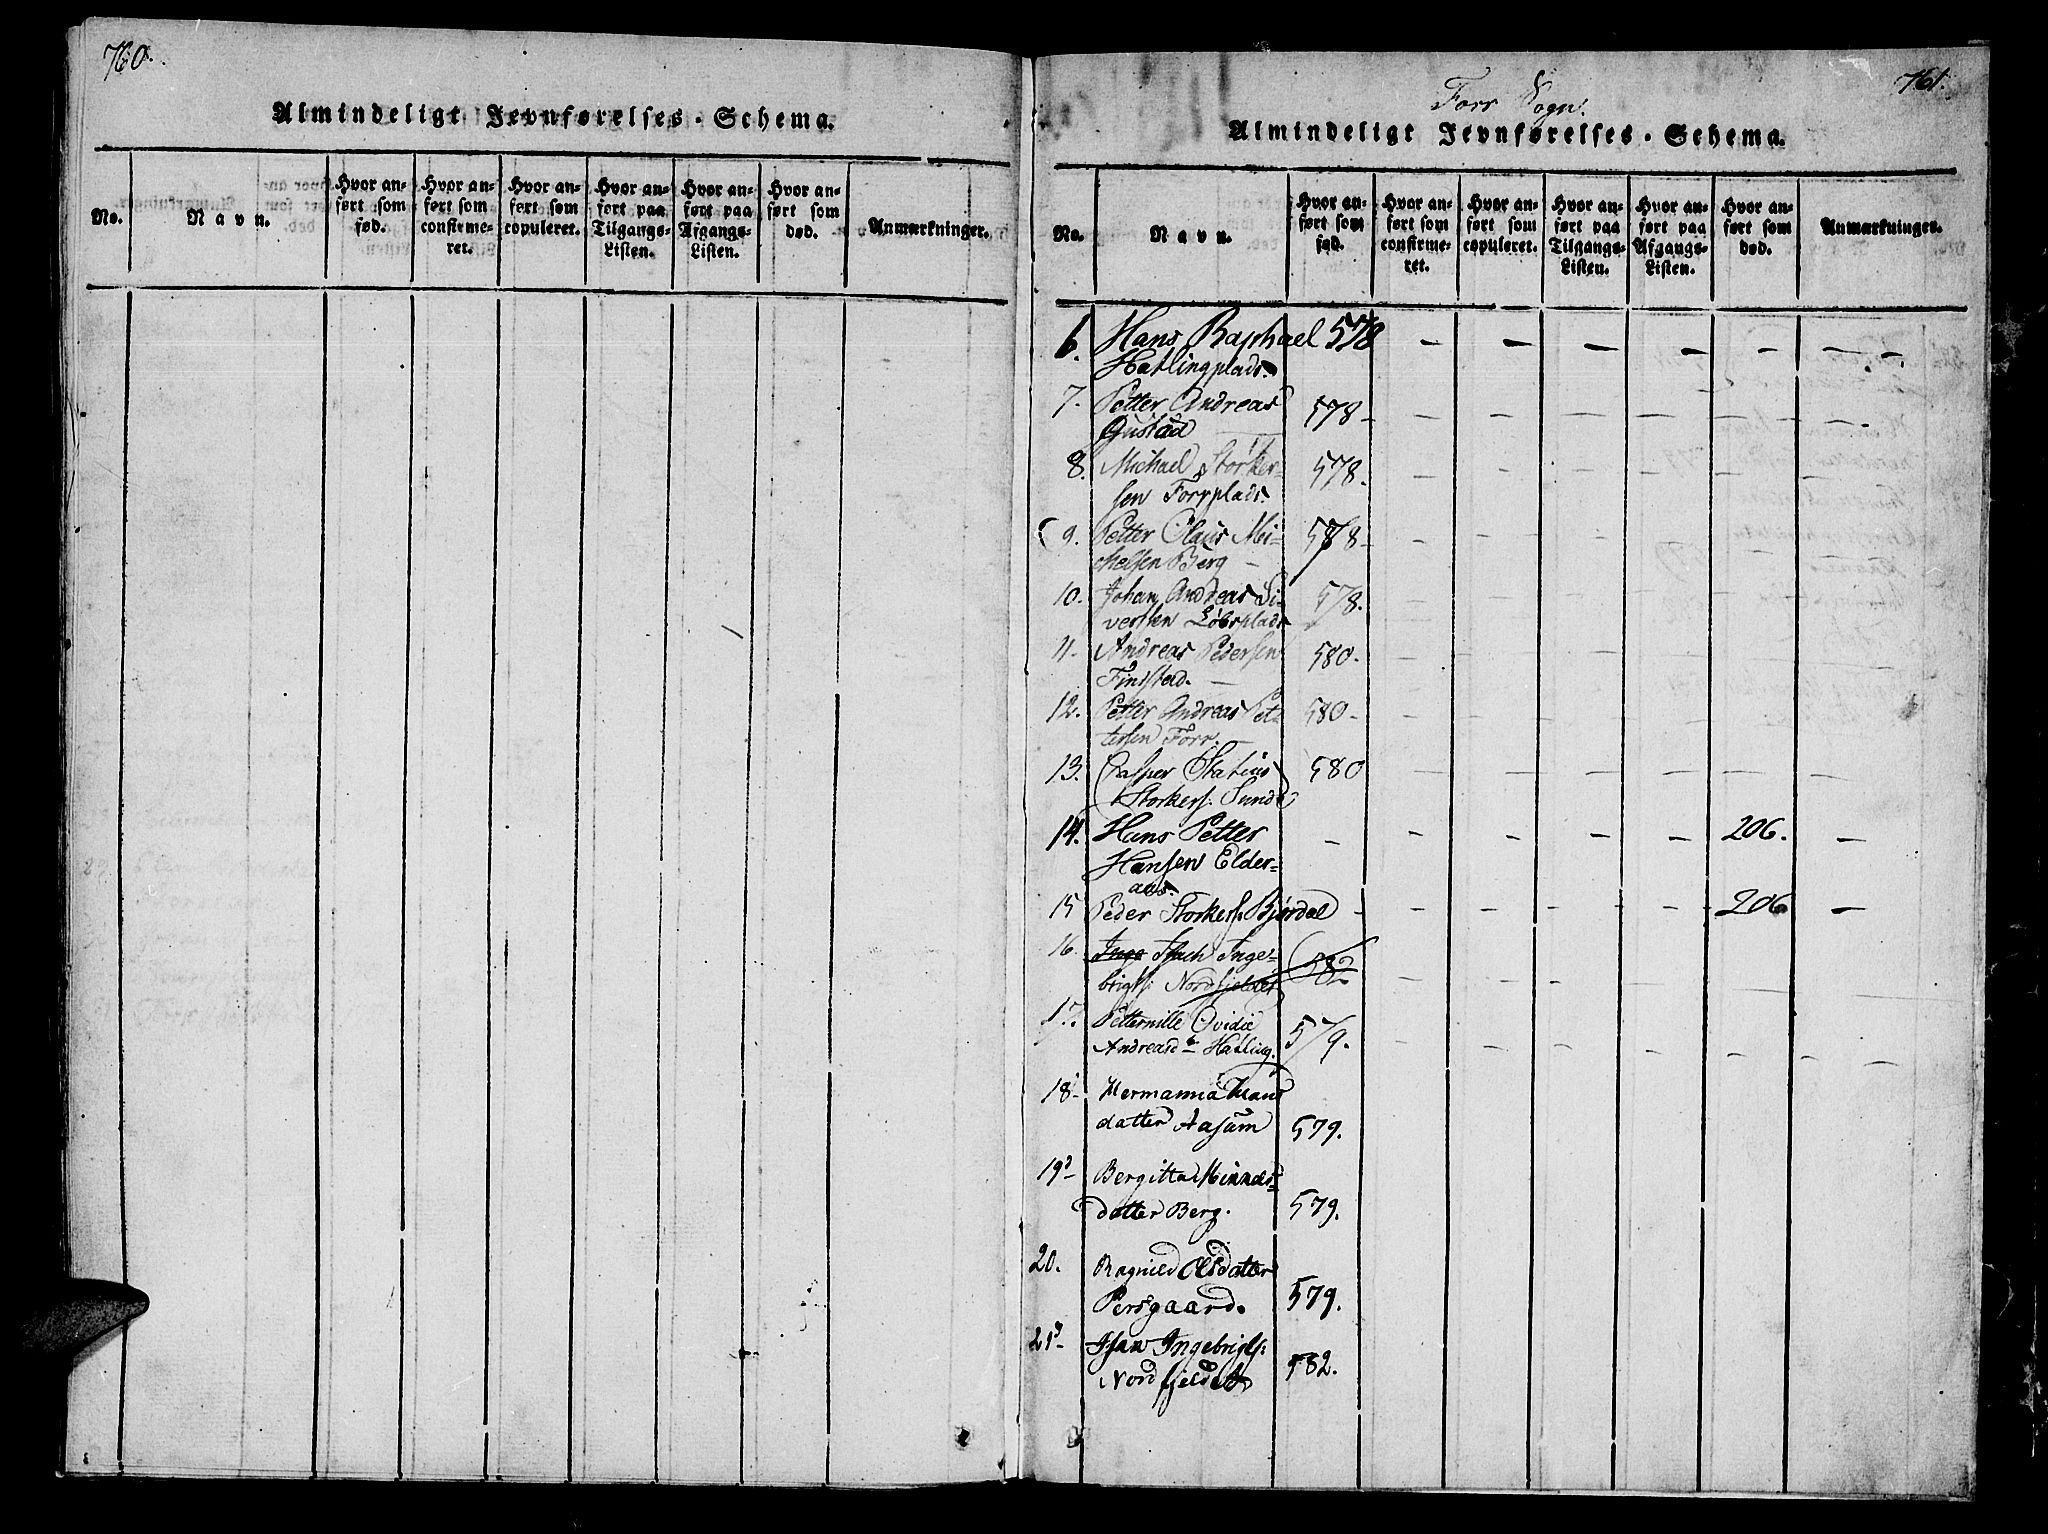 760.
Almindeligt Jevnførelses-Schema.
No.
Navn.
Hvor an-
ført som
fød.
Hvor an-
ført som
confirme-
ret.
Hvor an-
ført som
copuleret.
Hvor an-
ført paa
Tilgangs-
Listen.
Hvor an-
ført paa
Afgangs-
Listen.
Hvor an-
ført som
død.
Anmærkninger.
761.
Forr Sogn.
Almindeligt Jevnførelses-Schema.
No.
Navn.
Hvor an-
ført som
fød.
Hvor an-
ført som
confirme-
ret.
Hvor an-
ført som
copuleret.
Hvor an-
ført paa
Tilgangs-
Listen.
Hvor an-
ført paa
Afgangs-
Listen.
Hvor an-
ført som
død.
Anmærkninger.
6. Hans Raphael 578 — — — — — — —
Hatlingplads.
7. Petter Andreas 578 — — — — — — —
Gustad
8. Michael Storker- 578. — — — — — —
sen Forrplads.
9. Petter Claus Mi- 578 — — — — — —
chelsen Berg —
10. Johan Andreas Si- 578. — — — — — —
vertsen Løbsplads
11. Andreas Pedersen 580. — — — — — —
Finstad. —
12. Petter Andreas Pet- 580 — — — — — —
tersen Forr. —
13. Casper Statius 580 — — — — — —
Storkers. Sunde
14. Hans Petter — — — — — 206. —
Hansen Elder-
aas.
15 Peder Storkers. Bjørdal — — — — — 206 —
16 Inge Isach Inge- 582 — — — — —
brigts. Nordfjeldet
17. Petternille Ovidie 579. — — — — — —
Andreasd. Hatling.
18 Hermanna Hans
datter Aasum 579.
19 Bergitta Hinnds-
datter Berg. 579.
20. Ragnild Olsdatter
Persgaard. 579.
21 Isaw Ingebrigts.
Nordfjeldet 582.